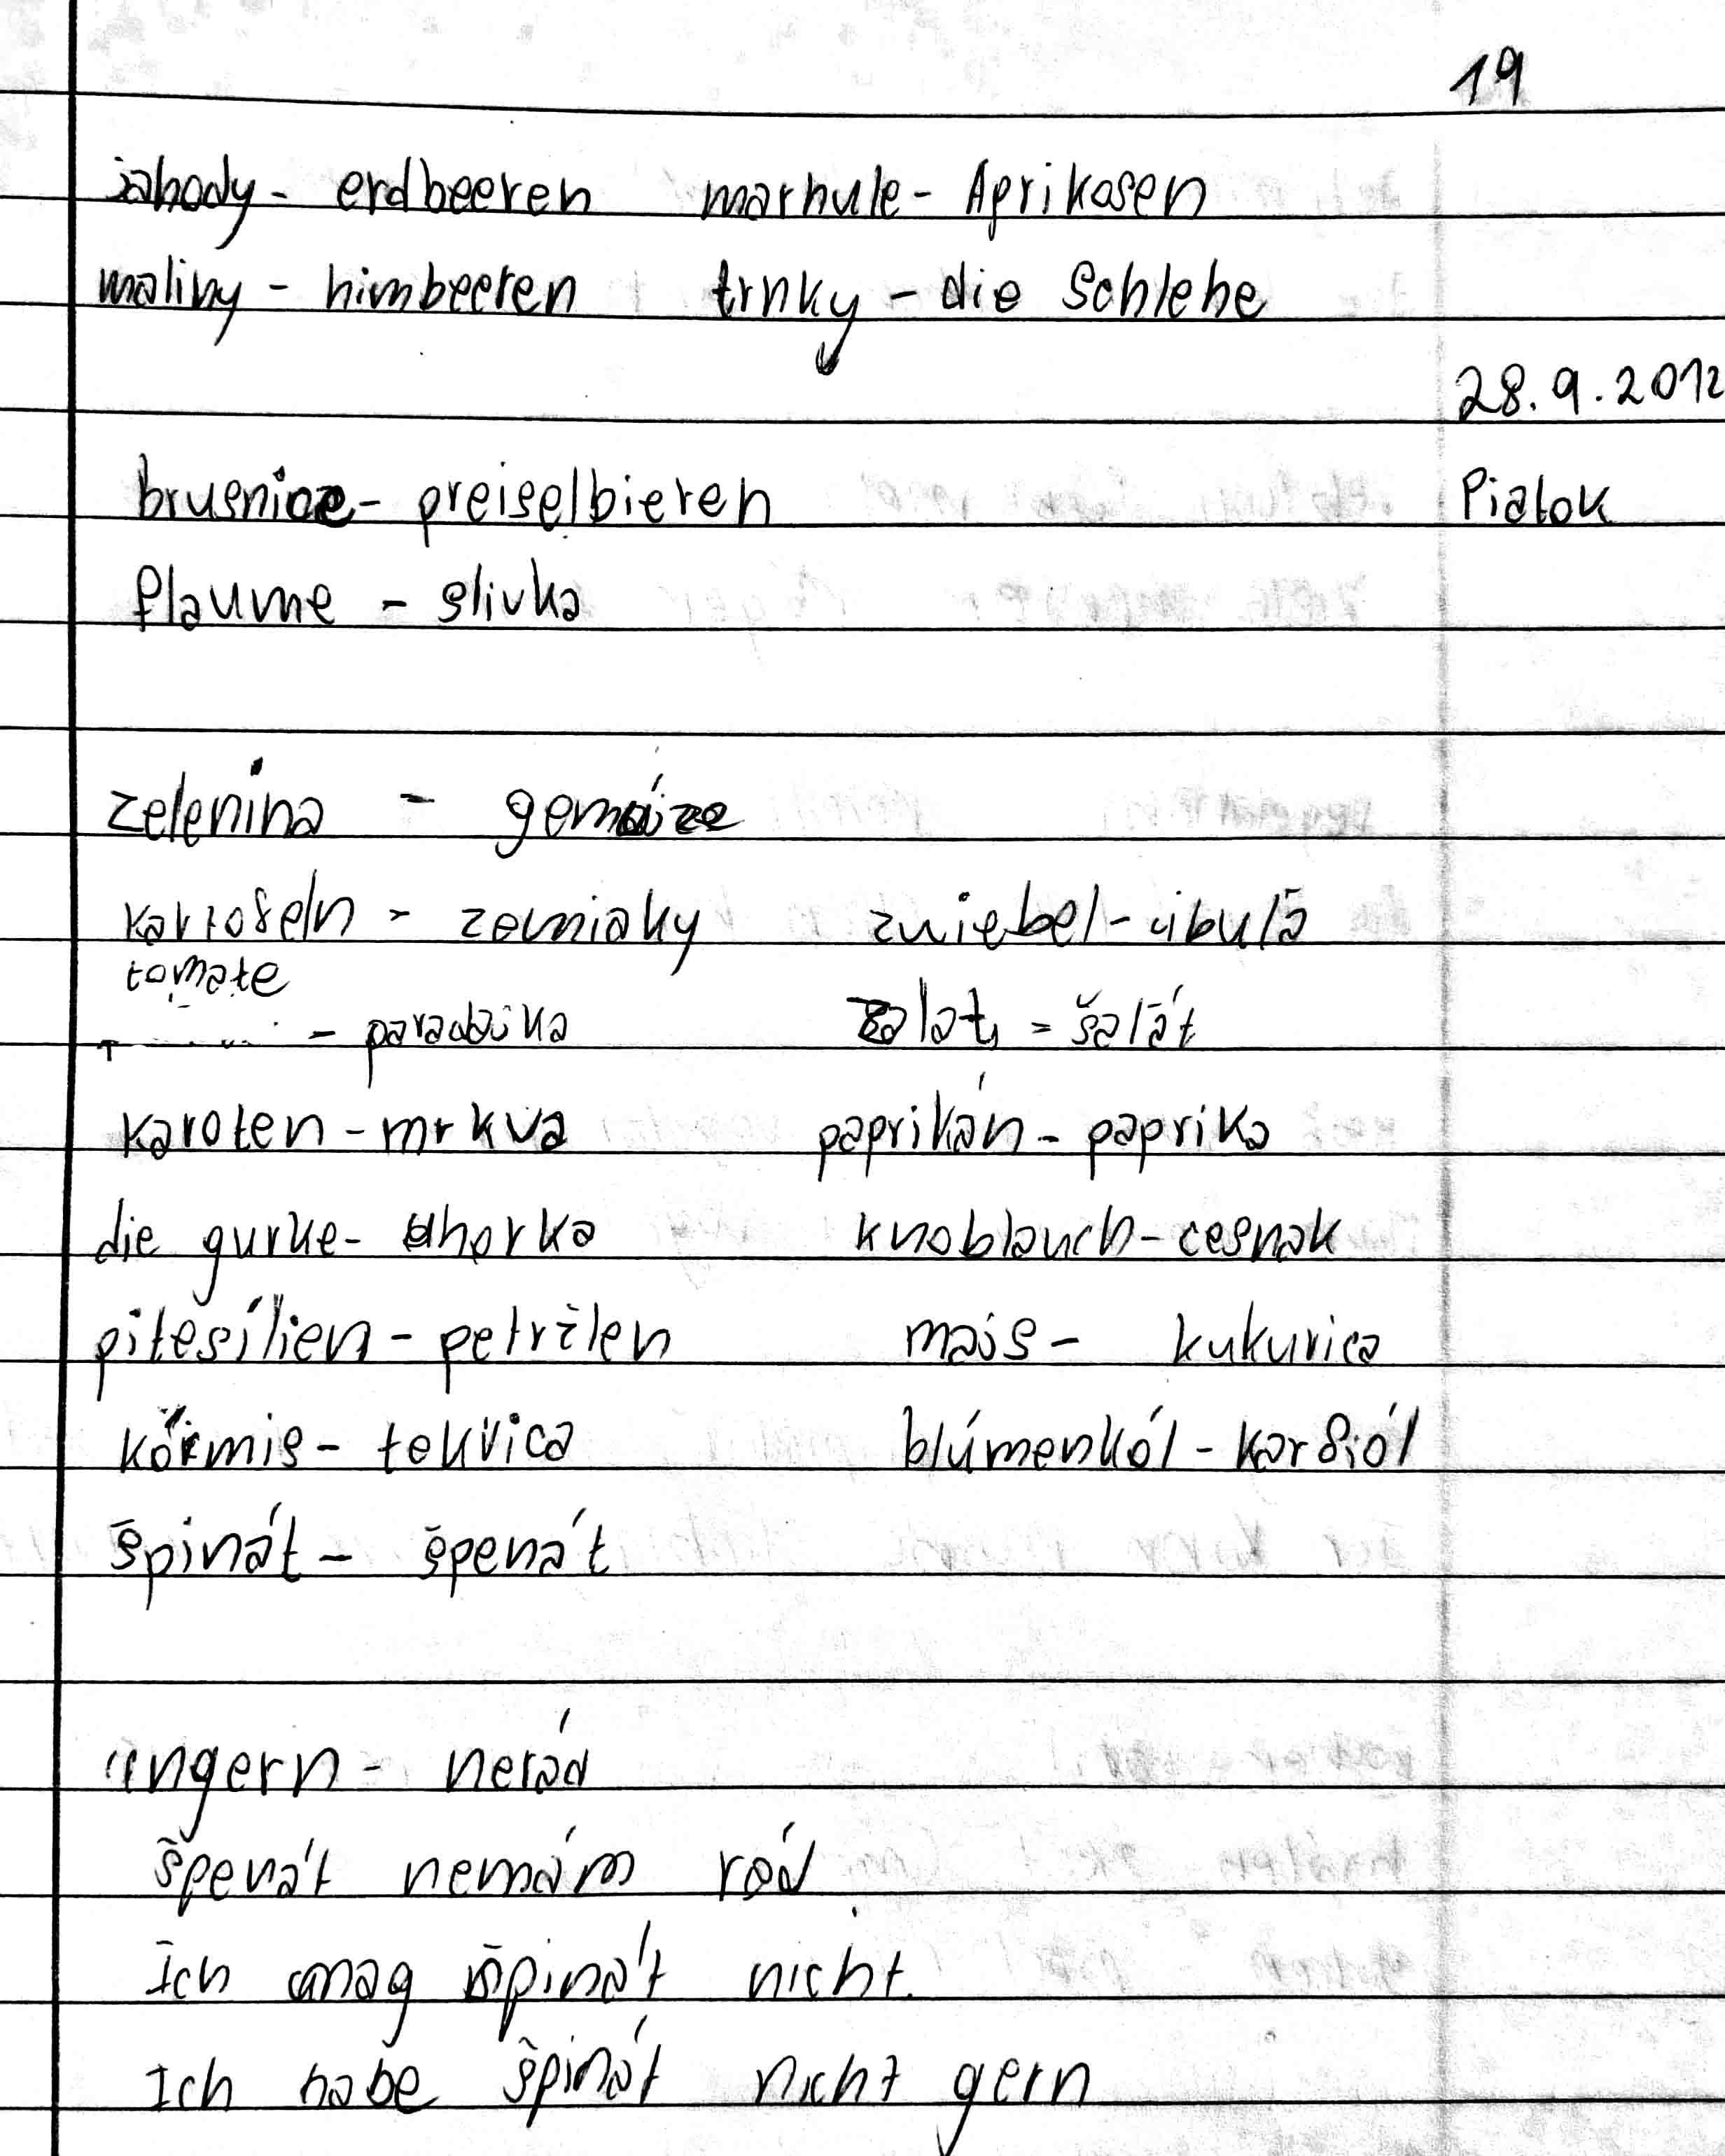 19
jahody - erdbeeren marhule - Aprikosen
maliny - himbeeren trnky - die Schlehe
28.9.2012
brusnice - preiselbieren Piatok
flaume - slivka
zelenina -
kartofeln - zemiaky zwiebel - cibulă
tomate
- paradajka zalat, = šalát
karoten - mrkva paprikán - paprika
die gurke - uhorka knoblauch - cesnak
pitesílien - petržlen mais - kukurica
körmis - tekvica blúmenkól - karfiól
špinát - špenát
ungern - nerád
špenát nemám rád
Ich mag špinát nicht.
Ich habe špinát nicht gern